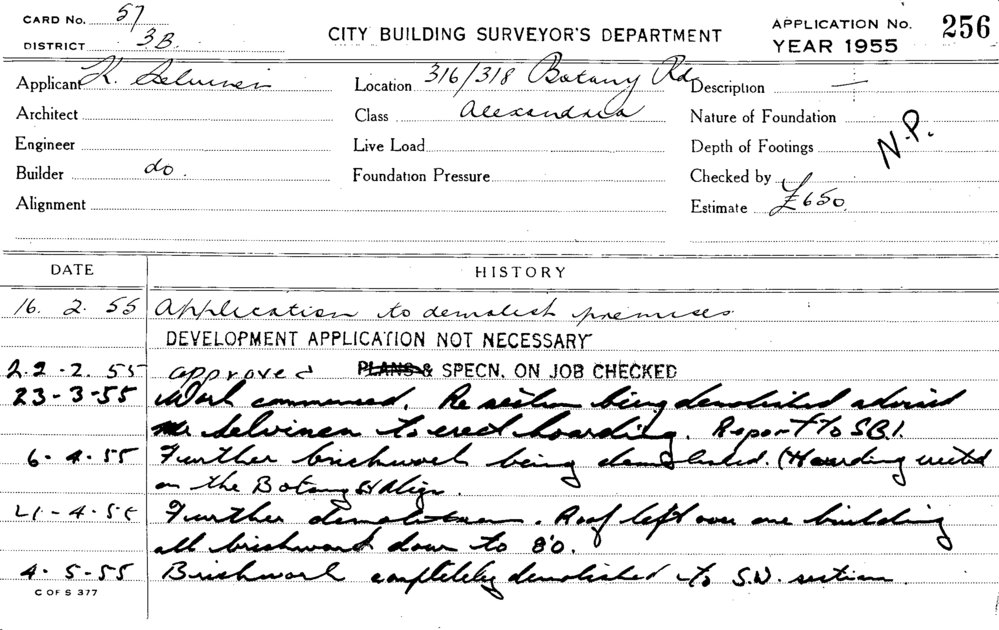 CARD No. 57
DISTRICT 3B.
CITY BUILDING SURVEYOR'S DEPARTMENT
APPLICATION No. 256
YEAR 1955
Applicant K. Selvinen
Location 316/318 Botany Rd
Description —
Architect
Class Alexandria
Nature of Foundation
N.P.
Engineer
Live Load
Depth of Footings
Builder do.
Foundation Pressure
Checked by
Alignment
Estimate £650.
DATE HISTORY
16. 2. 55 Application to demolish premises
DEVELOPMENT APPLICATION NOT NECESSARY
22-2. 55 approved PLANS & SPECN. ON JOB CHECKED
23-3-55 Work commenced. Re section being demolished advised
Mr Selvinen to erect hoarding. Report to S.B.I.
6-4-55 Further brickwork being demolished. (Hoarding erected
on the Botany St Align.
21-4-55 Further demolition. Roof left over one building
all brickwork down to 8'0.
4-5-55 Brickwork completely demolished to S.W. section.
C OF S 377